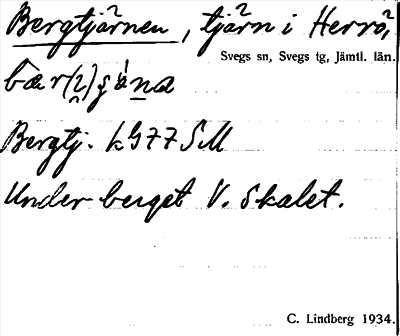 Bergtjärnen, tjärn i Herrö,
Svegs sn, Svegs tg, Jämtl. län.
Bergtj. LG77SM
Under berget V. Skalet.
C. Lindberg 1934.